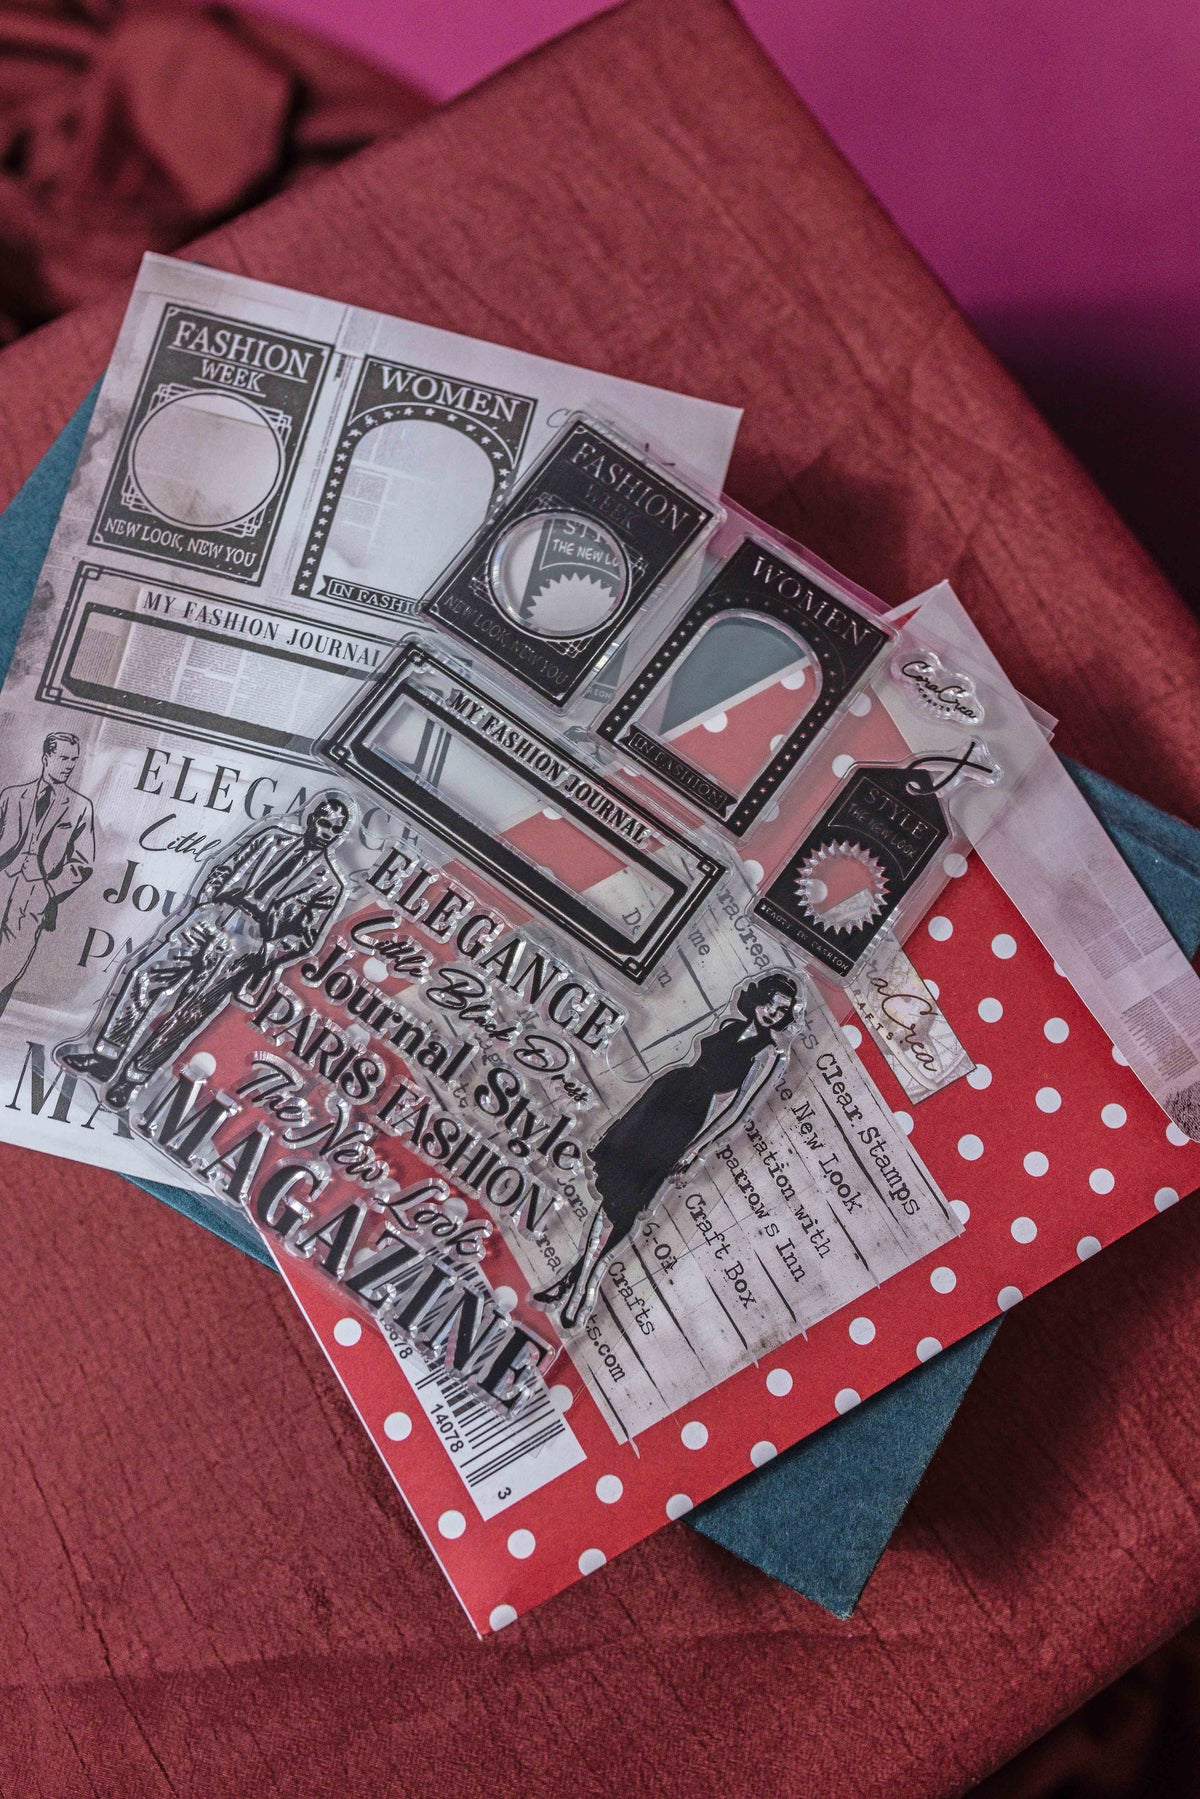 FASHION
WEEK
NEW LOOK, NEW YOU
WOMEN
IN FASHI
MY FASHION JOURNAL
ELEGANCE
Little
Jou
PA
MA
FASHION
WEEK
STY
THE NEW LO
NEW LOOK, NEW YOU
WOMEN
IN FASHION
MY FASHION JOURNAL
CoraCrea
CRAFTS
STYLE
THE NEW LOOK
BEAUTY IN FASHION
ELEGANCE
Little Black Dress
Journal Style
PARIS FASHION
The New Look
MAGAZINE
raCrea
RAFTS
Clear Stamps
he New Look
oration with
parrow's Inn
Craft Box
6-04
Crafts
ts.com
14078
3